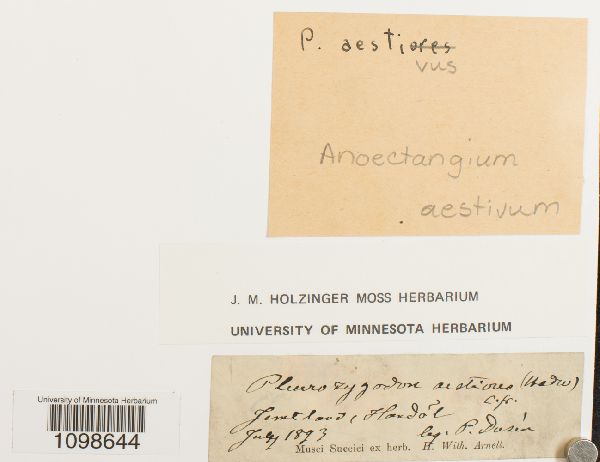 P. aestiores
vus
Anoectangium
aestivum
J. M. HOLZINGER MOSS HERBARIUM
UNIVERSITY OF MINNESOTA HERBARIUM
Pleurozygodon aestivus (Hedw)
c. fr.
Jemtland, Handöl
July 1893 leg. P. Dusén
Musci Suecici ex herb. H. Wilh. Arnell.
University of Minnesota Herbarium
1098644